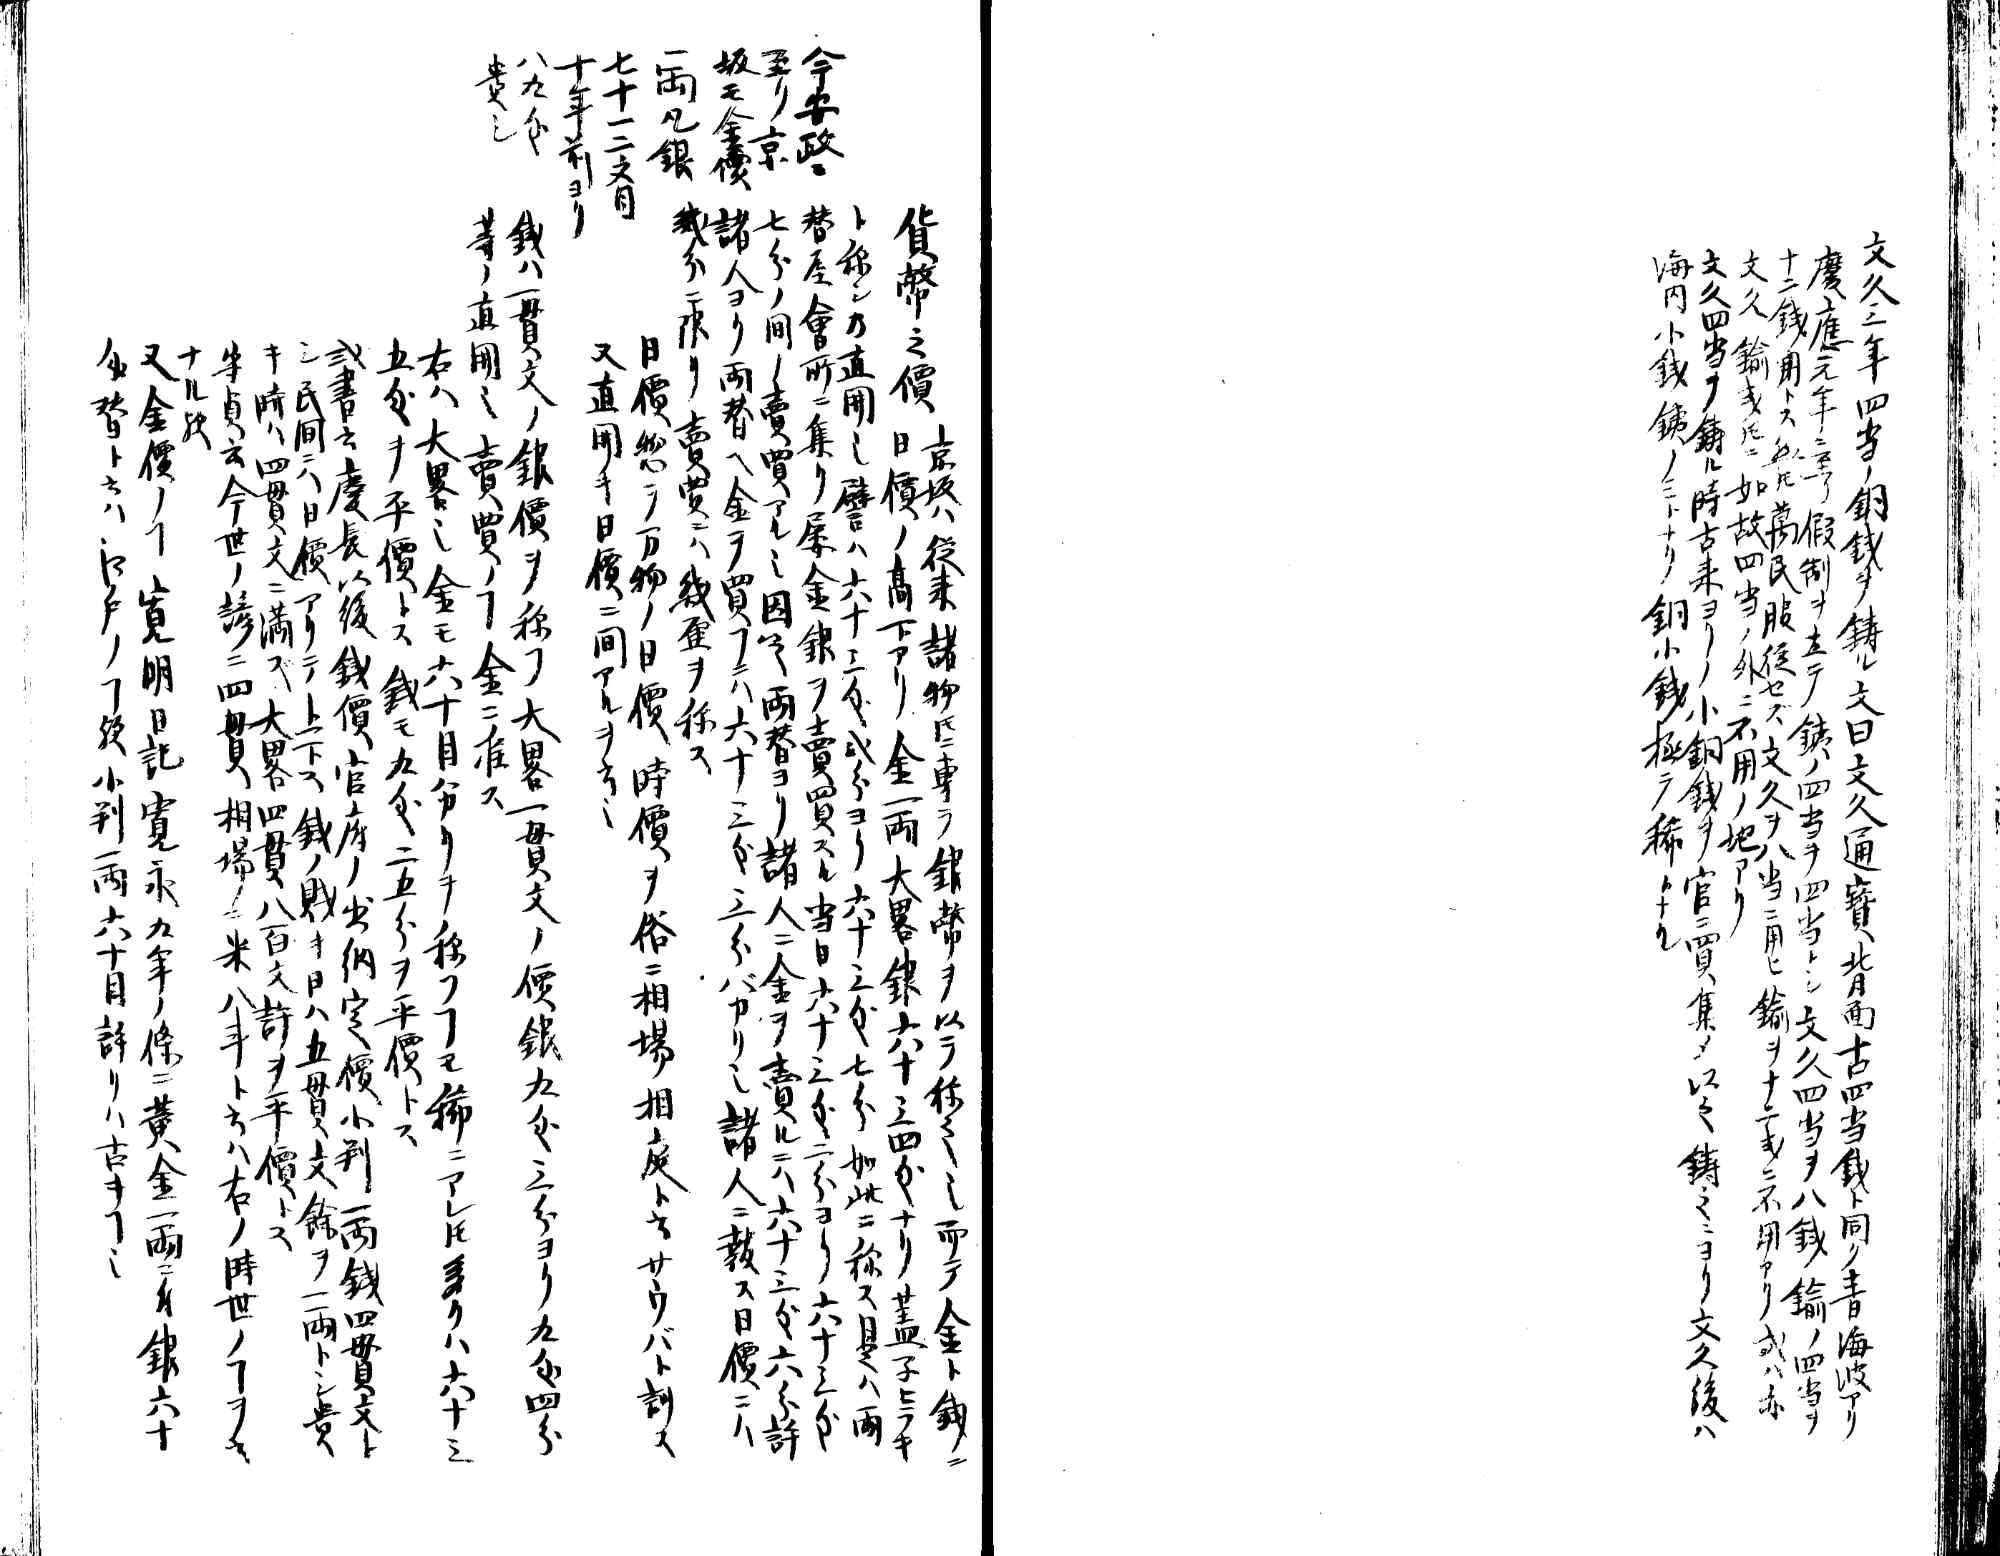 文久三年四当ノ銅銭ヲ鋳ル文曰文久通寳背面古四当銭ト同ク青海波アリ
慶應元年ニ至リ假制ヲ立テ銕ノ四当ヲ四当トシ文久四当ヲ八銭鍮ノ四当ヲ
十二銭用トス然𪜈萬民服從セズ文久ヲ八当ニ用ヒ鍮ヲ十二或ニ不用アリ或ハ亦
文久鍮或𪜈ニ如故四当ノ外ニ不用ノ地アリ
文久四当ヲ鋳ル時古来ヨリノ小銅銭ヲ官ニ買集メ以之鋳之ニヨリ文久後ハ
海内小銭銕ノミトナリ銅小銭極テ稀トナル
今安政ニ
至リ京
坂モ金價
一両凡銀
七十一二文目
十年前ヨリ
八九匁
貴シ
貨幣之價 京坂ハ從来諸物𪜈ニ專ラ銀幣ヲ以テ称之也而テ金ト銭ノニ
日價ノ高下アリ金一両大畧銀六十三四匁ナリ蓋子ヒラキ
ト称シ乃直開也譬ハ六十三匁弐分ヨリ六十三匁七分如此ニ称ス是ハ両
替屋會所ニ集リ屡金銀ヲ賣買スル当日六十三匁二分ヨリ六十三匁
七分ノ間ノ賣買アル也因之両替ヨリ諸人ニ金ヲ賣ルニハ六十三匁六分許
諸人ヨリ両替ヘ金ヲ買フニハ六十三匁三分バカリ也諸人ニ報ス日價ニハ
幾分ニ限リ賣買ニハ幾厘ヲ称ス
日價惣テ万物ノ日價時價ヲ俗ニ相場相庭ト云サウバト訓ス
又直開キ日價ニ間アルヲ云也
銭ハ一貫文ノ銀價ヲ称フ大畧一貫文ノ價銀九匁三分ヨリ九匁四分
等ノ直開也賣買ノヿ金ニ准ス
右ハ大畧也金モ六十目分リヲ称フヿモ稀ニアレ𪜈多クハ六十三
五匁ヲ平價トス銭モ九匁二五分ヲ平價トス
或書云慶長以後銭價官府ノ出納定價小判一両銭四貫文ト
シ民間ニハ日價アリテ上下ス銭ノ賎キ日ハ五貫文餘ヲ一両トシ貴
キ時ハ四貫文ニ満ズ大畧四貫八百文許ヲ平價トス
守貞云今世ノ諺ニ四貫相場ニ米八斗ト云ハ右ノ時世ノヿヲ云
ナル歟
又金價ノヿ寛明日記寛永九年ノ條ニ黄金一両ニ付銀六十
匁替ト云ハ江戸ノヿ歟小判一両六十目許リハ古キヿ也